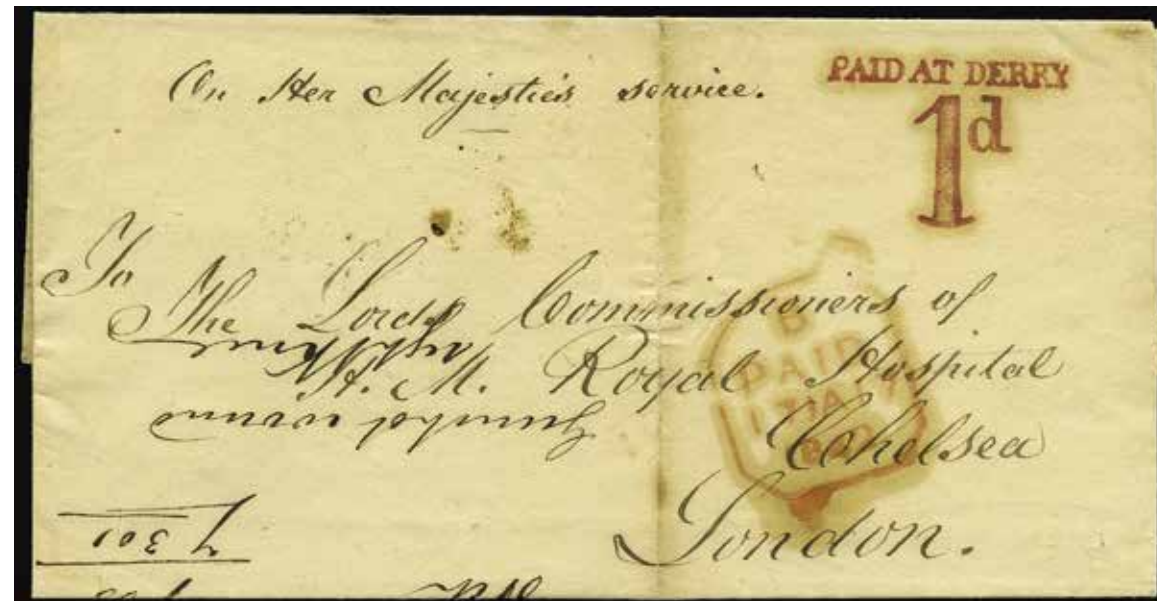 On Her Majesties service.
PAID AT DERRY
1d
To
The Lords Commissioners of
H. M. Royal Hospital
Chelsea
London.
PAID
301